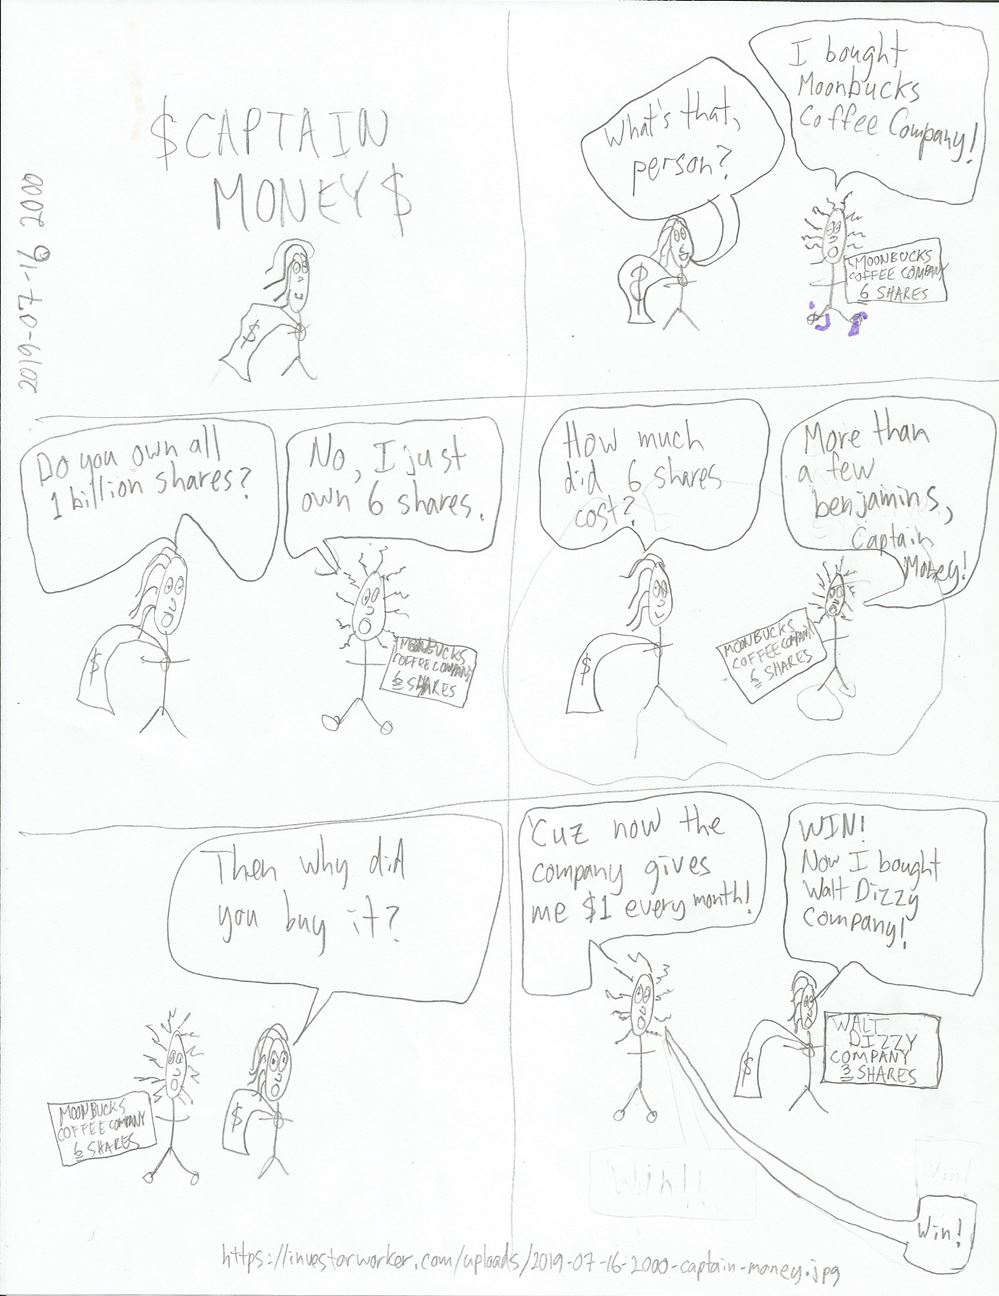 $CAPTAIN
MONEY$
2019-07-16 2000
What's that,
person?
I bought
Moonbucks
Coffee Company!
MOONBUCKS
COFFEE COMPANY
6 SHARES
Do you own all
1 billion shares?
No, I just
own 6 shares.
$
MOONBUCKS
COFFEE COMPANY
6 SHARES
How much
did 6 shares
cost?
More than
a few
benjamins,
Captain
Money!
$
MOONBUCKS
COFFEE COMPANY
6 SHARES
Then why did
you buy it?
MOONBUCKS
COFFEE COMPANY
6 SHARES
$
'Cuz now the
company gives
me $1 every month!
WIN!
Now I bought
Walt Dizzy
Company!
$
WALT
DIZZY
COMPANY
3 SHARES
Win!!
Win!
Win!
https://investorworker.com/uploads/2019-07-16-2000-captain-money.jpg